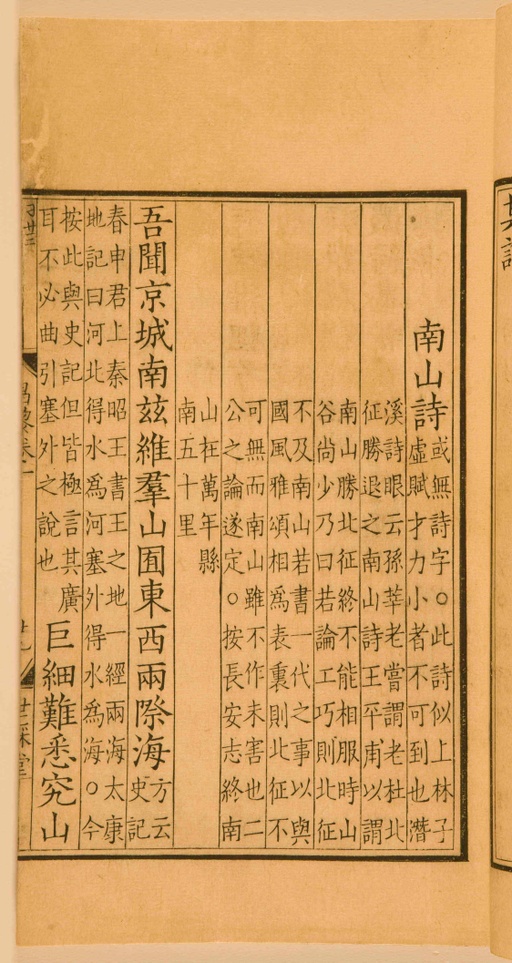 南山詩或無詩字○此詩似上林子
虛賦才力小者不可到也潛
溪詩眼云孫莘老嘗謂老杜北
征勝退之南山詩王平甫以謂
南山勝北征終不能相服時山
谷尚少乃曰若論工巧則北征
不及南山若書一代之事以與
國風雅頌相爲表裏則北征不
可無而南山雖不作未害也二
公之論遂定○按長安志終南
山在萬年縣
南五十里
吾聞京城南茲維羣山囿東西兩際海方云
史記
春申君上秦昭王書王之地一經兩海太康
地記曰河北得水爲河塞外得水爲海○今
按此與史記但皆極言其廣
耳不必曲引塞外之說也巨細難悉究山
昌黎卷一
世綵堂